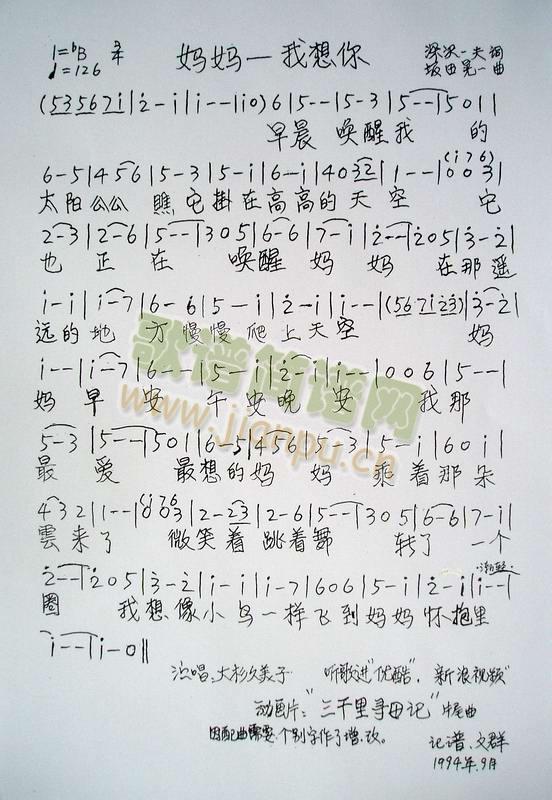 1=♭B 3/4
♩=126
妈妈—我想你
深沢一夫 词
坂田晃一 曲
(5 3 5 6 7 i | 2 - i | i - - | i 0) 6 | 5 - - | 5 - 3 | 5 - - | 5 0 1 |
早晨 唤醒我 的
6 - 5 | 4 5 6 | 5 - 3 | 5 - i | 6 - i | 4 0 3 2 | 1 - - | (i 7 6) 0 0 3 |
太阳公公 瞧它掛在高高的天空 它
2 - 3 | 2 - 6 | 5 - - | 3 0 5 | 6 - 6 | 7 - i | 2 - - | 2 0 5 | 3 - 2 |
也正在 唤醒妈妈 在那遥
i - i | i - 7 | 6 - 6 | 5 - i | 2 - i | i - - | (5 6 7 i 2 3) | 3 - 2 |
远的地方慢慢爬上天空 妈
i - - | i - 7 | 6 - - | 5 - i | 2 - i | i - - | 0 0 6 | 5 - - |
妈早安午安晚安 我那
5 - 3 | 5 - - | 5 0 1 | 6 - 5 | 4 5 6 | 5 - 3 | 5 - i | 6 0 i |
最爱 最想的妈妈 乘着那朵
4 3 2 | 1 - - | (i 7 6) 0 0 3 | 2 - 2 3 | 2 - 6 | 5 - - | 3 0 5 | 6 - 6 | 7 - i |
雲来了 微笑着跳着舞 转了一个
2 - - | 2 0 5 | 3 - 2 | i - i | i - 7 | 6 0 6 | 5 - i | 2 - i | i - - |
圈 我想像小鸟一样飞到妈妈怀抱里
i - - | i - 0 ‖
演唱:大杉久美子 听歌进“优酷”，新浪视频”
动画片:“三千里寻母记”片尾曲
因配曲需要,个别字作了增、改。
记谱、文群
1994年.9月
歌谱简谱网
www.jianpu.cn